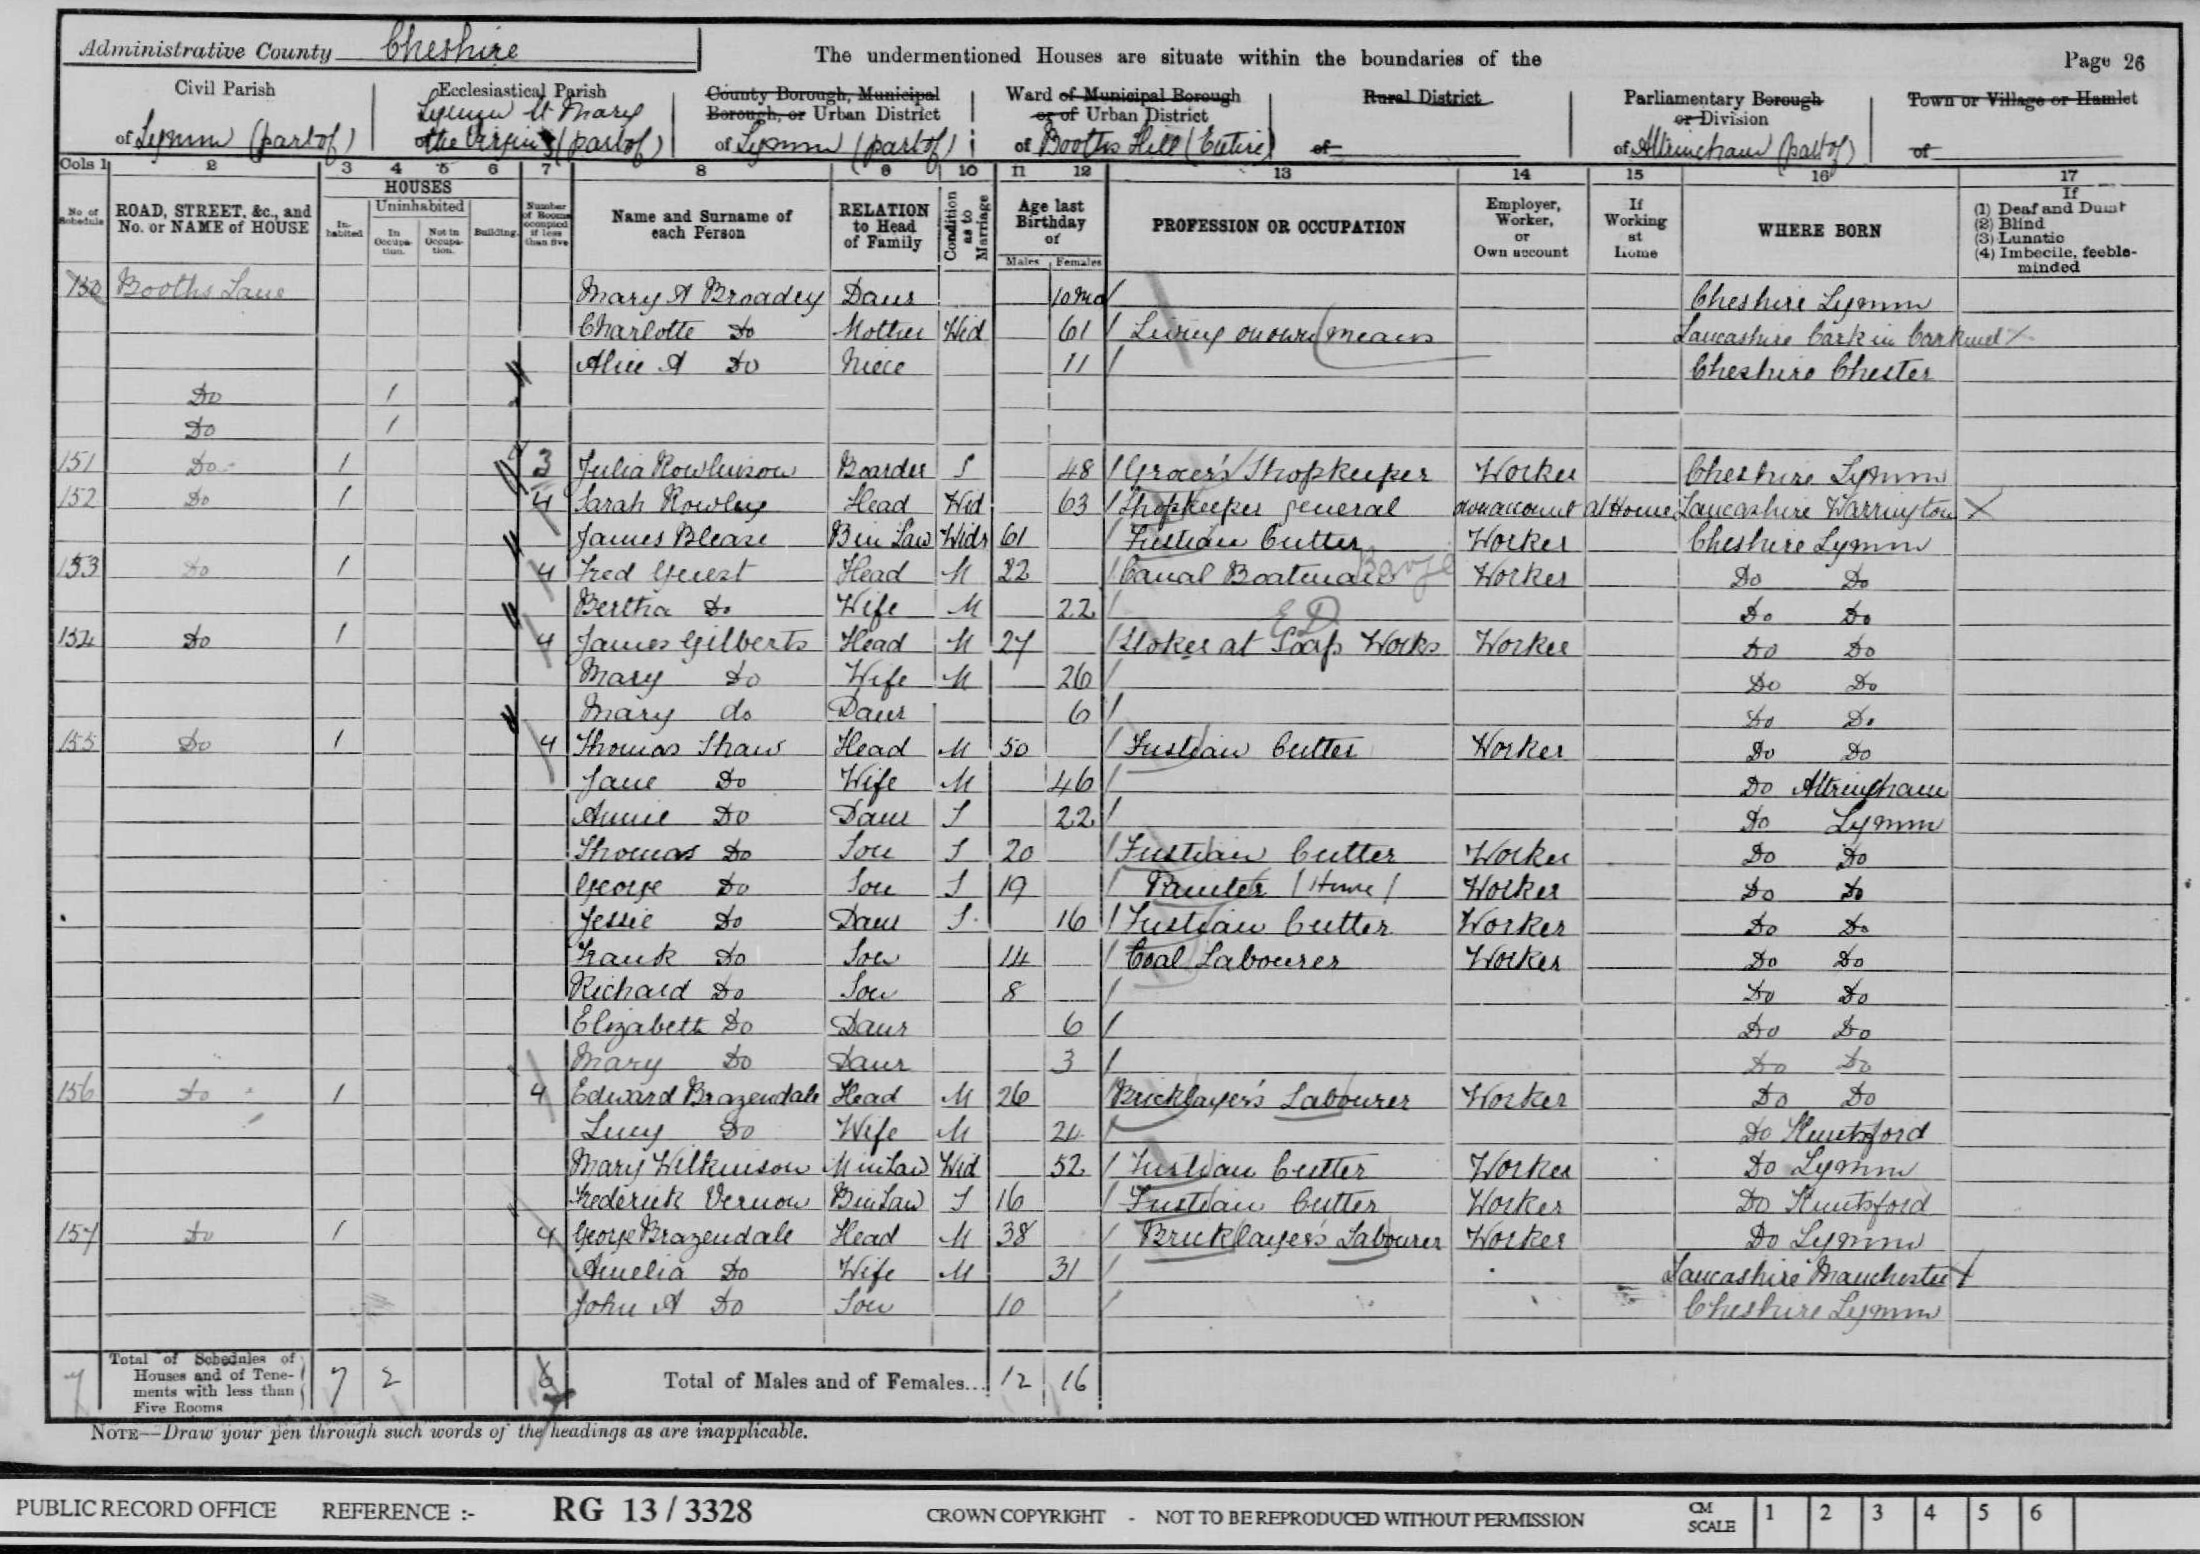 Administrative County Cheshire The undermentioned Houses are situate within the boundaries of the Page 26
Civil Parish of Lymm (part of)
Ecclesiastical Parish Lymm St Mary of the Virgin (part of)
County Borough, Municipal Borough, or Urban District of Lymm (part of)
Ward of Municipal Borough or of Urban District of Booths Hill (Entire)
Rural District of
Parliamentary Borough or Division of Altrincham (part of)
Town or Village or Hamlet of
Cols 1 2 3 4 5 6 7 8 9 10 11 12 13 14 15 16 17
No of Schedule
ROAD, STREET, &c., and No. or NAME of HOUSE
HOUSES
Inhabited
Uninhabited
In Occupation.
Not in Occupation.
Building.
Number of Rooms occupied if less than five
Name and Surname of each Person
RELATION to Head of Family
Condition as to Marriage
Age last Birthday of
Males Females
PROFESSION OR OCCUPATION
Employer, Worker, or Own account
If Working at Home
WHERE BORN
If
(1) Deaf and Dumb
(2) Blind
(3) Lunatic
(4) Imbecile, feeble-minded
150 Booths Lane Mary A Broadey Daur 10 mo Cheshire Lymm
Charlotte Do Mother Wid 61 Living on own means Lancashire Cark in Cartmel X
Alice A Do Niece 11 Cheshire Chester
Do 1
Do 1
151 Do 1 3 Julia Rowlinson Boarder S 48 Grocer's Shopkeeper Worker Cheshire Lymm
152 Do 1 4 Sarah Rowley Head Wid 63 Shopkeeper general own account at Home Lancashire Warrington X
James Blease B in Law Widr 61 Fustian Cutter Worker Cheshire Lymm
153 Do 1 4 Fred Guest Head M 22 Canal Boatman Barge Worker Do Do
Bertha Do Wife M 22 Do Do
ED
154 Do 1 4 James Gilberts Head M 27 Stoker at Soap Works Worker Do Do
Mary Do Wife M 26 Do Do
Mary do Daur 6 Do Do
155 Do 1 4 Thomas Shaw Head M 50 Fustian Cutter Worker Do Do
Jane Do Wife M 46 Do Altrincham
Annie Do Daur S 22 Do Lymm
Thomas Do Son S 20 Fustian Cutter Worker Do Do
George Do Son S 19 Painter (House) Worker Do Do
Jessie Do Daur S 16 Fustian Cutter Worker Do Do
Frank Do Son 14 Coal Labourer Worker Do Do
Richard Do Son 8 Do Do
Elizabeth Do Daur 6 Do Do
Mary Do Daur 3 Do Do
156 Do 1 4 Edward Brazendale Head M 26 Bricklayer's Labourer Worker Do Do
Lucy Do Wife M 24 Do Knutsford
Mary Wilkinson M in Law Wid 52 Fustian Cutter Worker Do Lymm
Frederick Vernon B in Law S 16 Fustian Cutter Worker Do Knutsford
157 Do 1 4 George Brazendale Head M 38 Bricklayer's Labourer Worker Do Lymm
Amelia Do Wife M 31 Lancashire Manchester X
John A Do Son 10 Cheshire Lymm
7 Total of Schedules of Houses and of Tenements with less than Five Rooms 7 2 6 7 Total of Males and of Females... 12 16
NOTE—Draw your pen through such words of the headings as are inapplicable.
PUBLIC RECORD OFFICE REFERENCE :- RG 13 / 3328 CROWN COPYRIGHT - NOT TO BE REPRODUCED WITHOUT PERMISSION CM SCALE 1 2 3 4 5 6